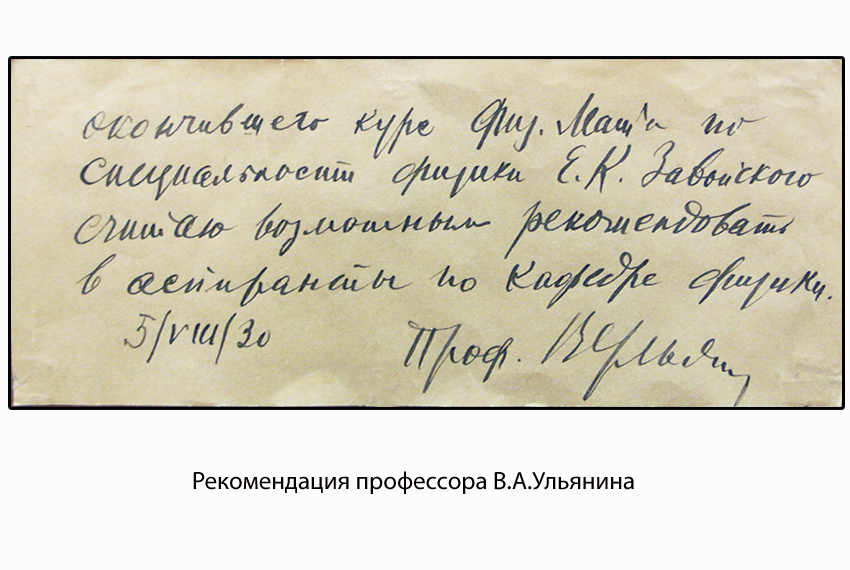 окончившего курс Физ. Мата по
специальности физики Е.К. Завойского
считаю возможным рекомендовать
в аспиранты по кафедре физики.
5/VIII/30 Проф. ВУльянин
Рекомендация профессора В.А.Ульянина